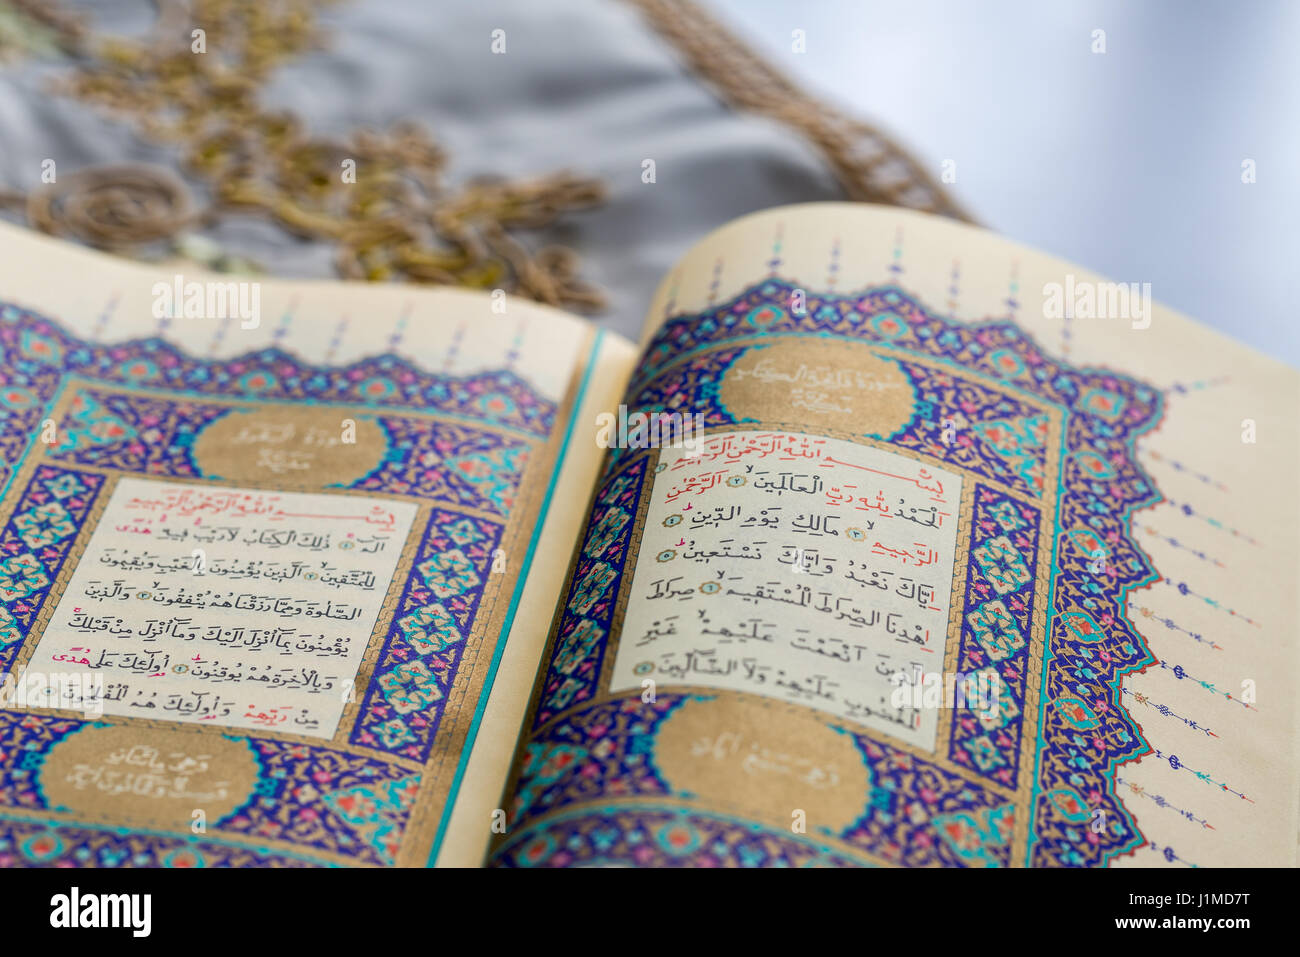 سورة فاتحة الكتاب
بِسْمِ اللّٰهِ الرَّحْمٰنِ الرَّحِيمِ ﴿١﴾
اَلْحَمْدُ لِلّٰهِ رَبِّ الْعَالَمِينَۙ ﴿٢﴾ اَلرَّحْمٰنِ
الرَّحِيمِۙ ﴿٣﴾ مَالِكِ يَوْمِ الدِّينِۜ ﴿٤﴾
اِيَّاكَ نَعْبُدُ وَاِيَّاكَ نَسْتَعِينُۜ ﴿٥﴾
اِهْدِنَا الصِّرَاطَ الْمُسْتَقِيمَۙ ﴿٦﴾ صِرَاطَ
الَّذِينَ اَنْعَمْتَ عَلَيْهِمْۙ غَيْرِ
الْمَغْضُوبِ عَلَيْهِمْ وَلَا الضَّٓالِّينَ ﴿٧﴾
وهى سبع آيات
سورة البقرة
بِسْمِ اللّٰهِ الرَّحْمٰنِ الرَّحِيمِ
الٓمٓۚ ﴿١﴾ ذٰلِكَ الْكِتَابُ لَا رَيْبَۚۛ فِيهِۚۛ هُدًى
لِلْمُتَّقِينَۙ ﴿٢﴾ اَلَّذِينَ يُؤْمِنُونَ بِالْغَيْبِ وَيُقِيمُونَ
الصَّلٰوةَ وَمِمَّا رَزَقْنَاهُمْ يُنْفِقُونَۙ ﴿٣﴾ وَالَّذِينَ
يُؤْمِنُونَ بِمَٓا اُنْزِلَ اِلَيْكَ وَمَٓا اُنْزِلَ مِنْ قَبْلِكَۚ
وَبِالْاٰخِرَةِ هُمْ يُوقِنُونَۜ ﴿٤﴾ اُو۬لٰٓئِكَ عَلٰى هُدًى
مِنْ رَبِّهِمْ وَاُو۬لٰٓئِكَ هُمُ الْمُفْلِحُونَ ﴿٥﴾
وهى مائتان
وست وثمانون آية
alamy
Image ID: J1MD7T
www.alamy.com